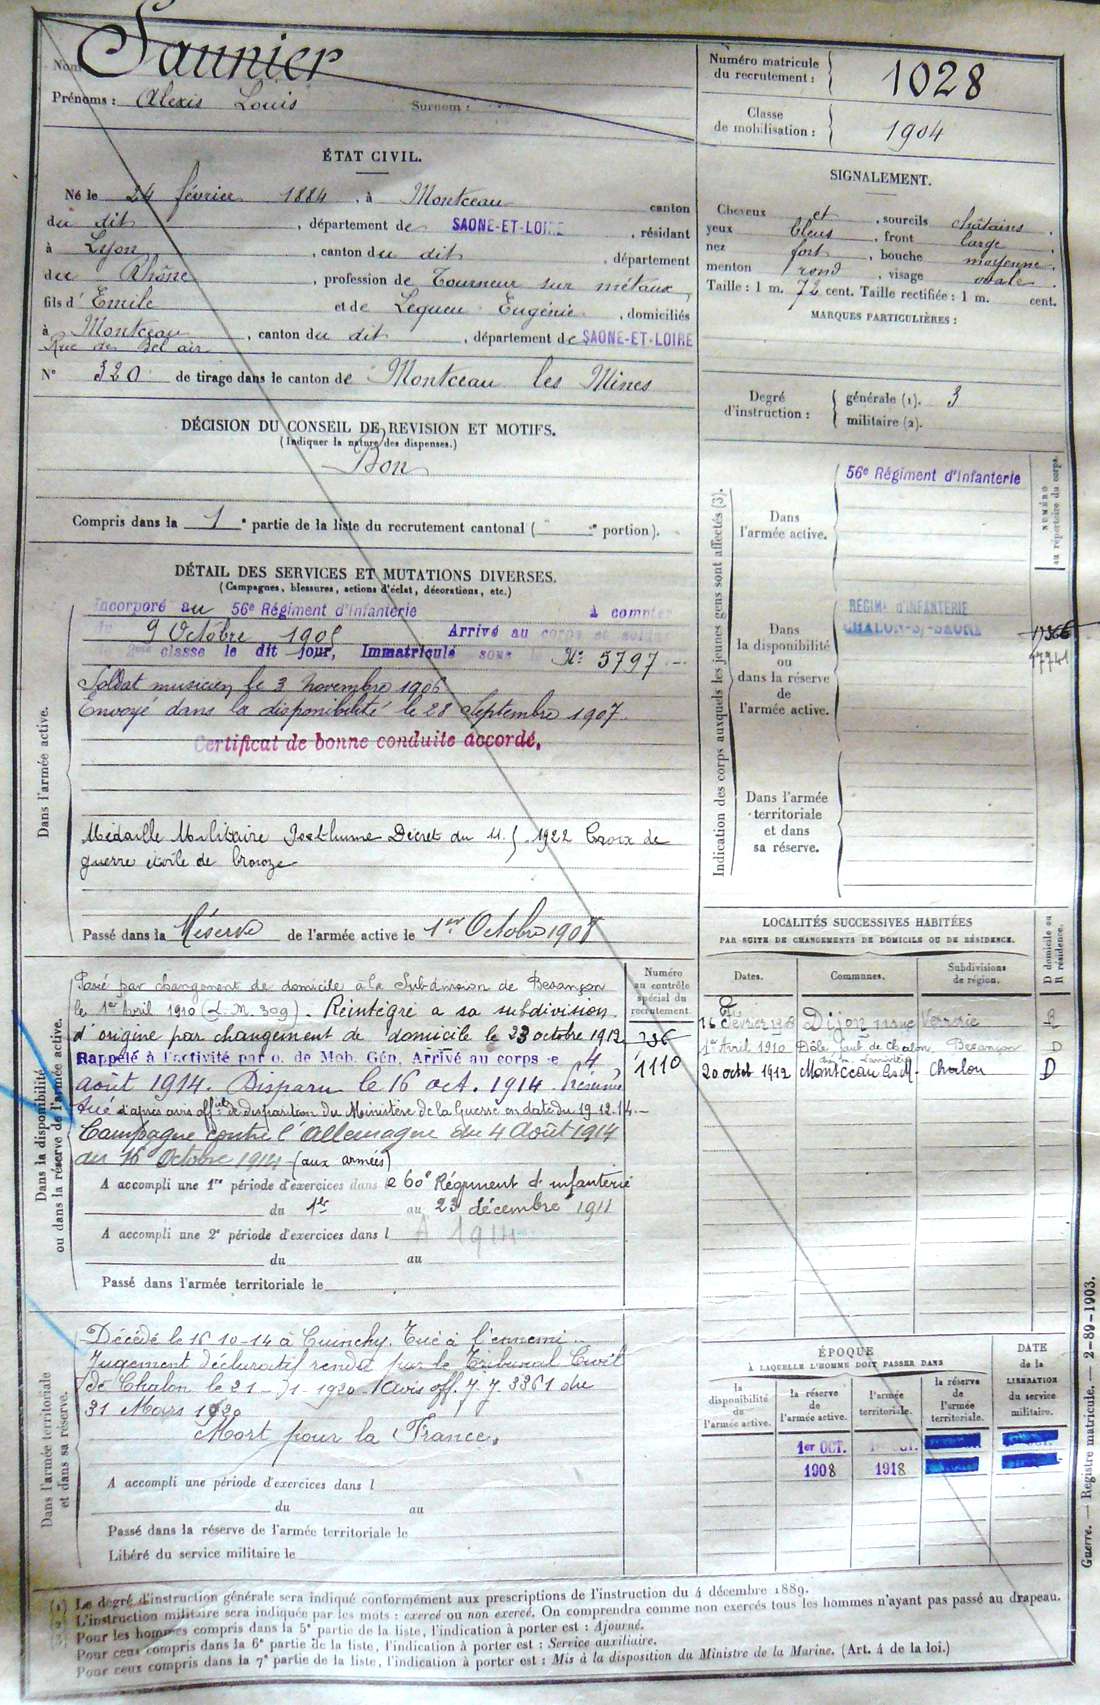 Nom Saunier
Prénoms : Alexis Louis Surnom :
Numéro matricule
du recrutement : 1028
Classe
de mobilisation : 1904
ÉTAT CIVIL.
Né le 24 février 1884, à Montceau canton
du dit, département de SAONE-ET-LOIRE, résidant
à Lyon, canton du dit, département
du Rhône, profession de Tourneur sur métaux,
fils d'Emile et de Lequeu Eugénie, domiciliés
à Montceau, canton du dit, département de SAONE-ET-LOIRE
Rue de Bel air
N° 320 de tirage dans le canton de Montceau les Mines
SIGNALEMENT.
Cheveux et, sourcils châtains.
yeux bleus, front large.
nez fort, bouche moyenne.
menton rond, visage ovale.
Taille : 1 m. 72 cent. Taille rectifiée : 1 m. cent.
MARQUES PARTICULIÈRES :
Degré
d'instruction : générale (1). 3
militaire (2).
DÉCISION DU CONSEIL DE REVISION ET MOTIFS.
(Indiquer la nature des dispenses.)
Bon
Compris dans la 1e partie de la liste du recrutement cantonal ( " e portion).
DÉTAIL DES SERVICES ET MUTATIONS DIVERSES.
(Campagnes, blessures, actions d'éclat, décorations, etc.)
Dans l'armée active.
Incorporé au 56e Régiment d'Infanterie à compter
9 Octobre 1905 Arrivé au corps et soldat
de 2me classe le dit jour, Immatriculé sous le N° 5797
Soldat musicien le 3 novembre 1906
Envoyé dans la disponibilité le 28 Septembre 1907.
Certificat de bonne conduite accordé.
Médaille Militaire Posthume Décret du 1922 Croix de
guerre étoile de bronze
Passé dans la Réserve de l'armée active le 1er Octobre 1908
Indication des corps auxquels les jeunes gens sont affectés (3).
NUMÉRO
au répertoire du corps.
Dans
l'armée active.
56e Régiment d'Infanterie
Dans
la disponibilité
ou
dans la réserve
de
l'armée active.
REGIMt d'INFANTERIE
CHALON-S/-SAONE
Dans l'armée
territoriale
et dans
sa réserve.
Dans la disponibilité
ou dans la réserve de l'armée active.
Numéro
au contrôle
spécial du
recrutement.
736
1110
Passé par changement de domicile à la Subdivision de Besançon
le 1er Avril 1910 (L.M. 309). Réintégré a sa subdivision
d'origine par changement de domicile le 23 octobre 1912
Rappelé à l'activité par o. de Mob. Gén. Arrivé au corps le 4
août 1914. Disparu le 16 oct. 1914. présumé
tué d'après avis officiel de disparition du Ministère de la Guerre en date du 19.12.14.
Campagne contre l'Allemagne du 4 Août 1914
au 16 Octobre 1914 (aux armées)
A accompli une 1re période d'exercices dans le 60e Régiment d'infanterie
du 1er au 23 décembre 1911
A accompli une 2e période d'exercices dans l A 1914
du au
Passé dans l'armée territoriale le
LOCALITÉS SUCCESSIVES HABITÉES
PAR SUITE DE CHANGEMENTS DE DOMICILE OU DE RÉSIDENCE.
D domicile ou
R résidence.
Dates. Communes. Subdivisions
de région.
16 février 1908 Dijon Verrerie R
1er Avril 1910 Dôle Besançon D
20 octob 1912 Montceau les M. Chalon D
Dans l'armée territoriale
et dans sa réserve.
Décédé le 16-10-14 à Cuinchy. Tué à l'ennemi.
Jugement déclaratif rendu par le Tribunal Civil
de Chalon le 21-1-1920. Avis off. 3361 du
31 Mars 1920
Mort pour la France.
A accompli une période d'exercices dans l
du au
Passé dans la réserve de l'armée territoriale le
Libéré du service militaire le
ÉPOQUE
À LAQUELLE L'HOMME DOIT PASSER DANS
DATE
de la
LIBÉRATION
du service
militaire.
la
disponibilité
de
l'armée active.
la réserve
de
l'armée active.
l'armée
territoriale.
la réserve
de
l'armée
territoriale.
1er OCT.
1908 1918
(1) Le degré d'instruction générale sera indiqué conformément aux prescriptions de l'instruction du 4 décembre 1889.
(2) L'instruction militaire sera indiquée par les mots : exercé ou non exercé. On comprendra comme non exercés tous les hommes n'ayant pas passé au drapeau.
(3) Pour les hommes compris dans la 5e partie de la liste, l'indication à porter est : Ajourné.
Pour ceux compris dans la 6e partie de la liste, l'indication à porter est : Service auxiliaire.
Pour ceux compris dans la 7e partie de la liste, l'indication à porter est : Mis à la disposition du Ministre de la Marine. (Art. 4 de la loi.)
Guerre. — Registre matricule. — 2-89-1903.